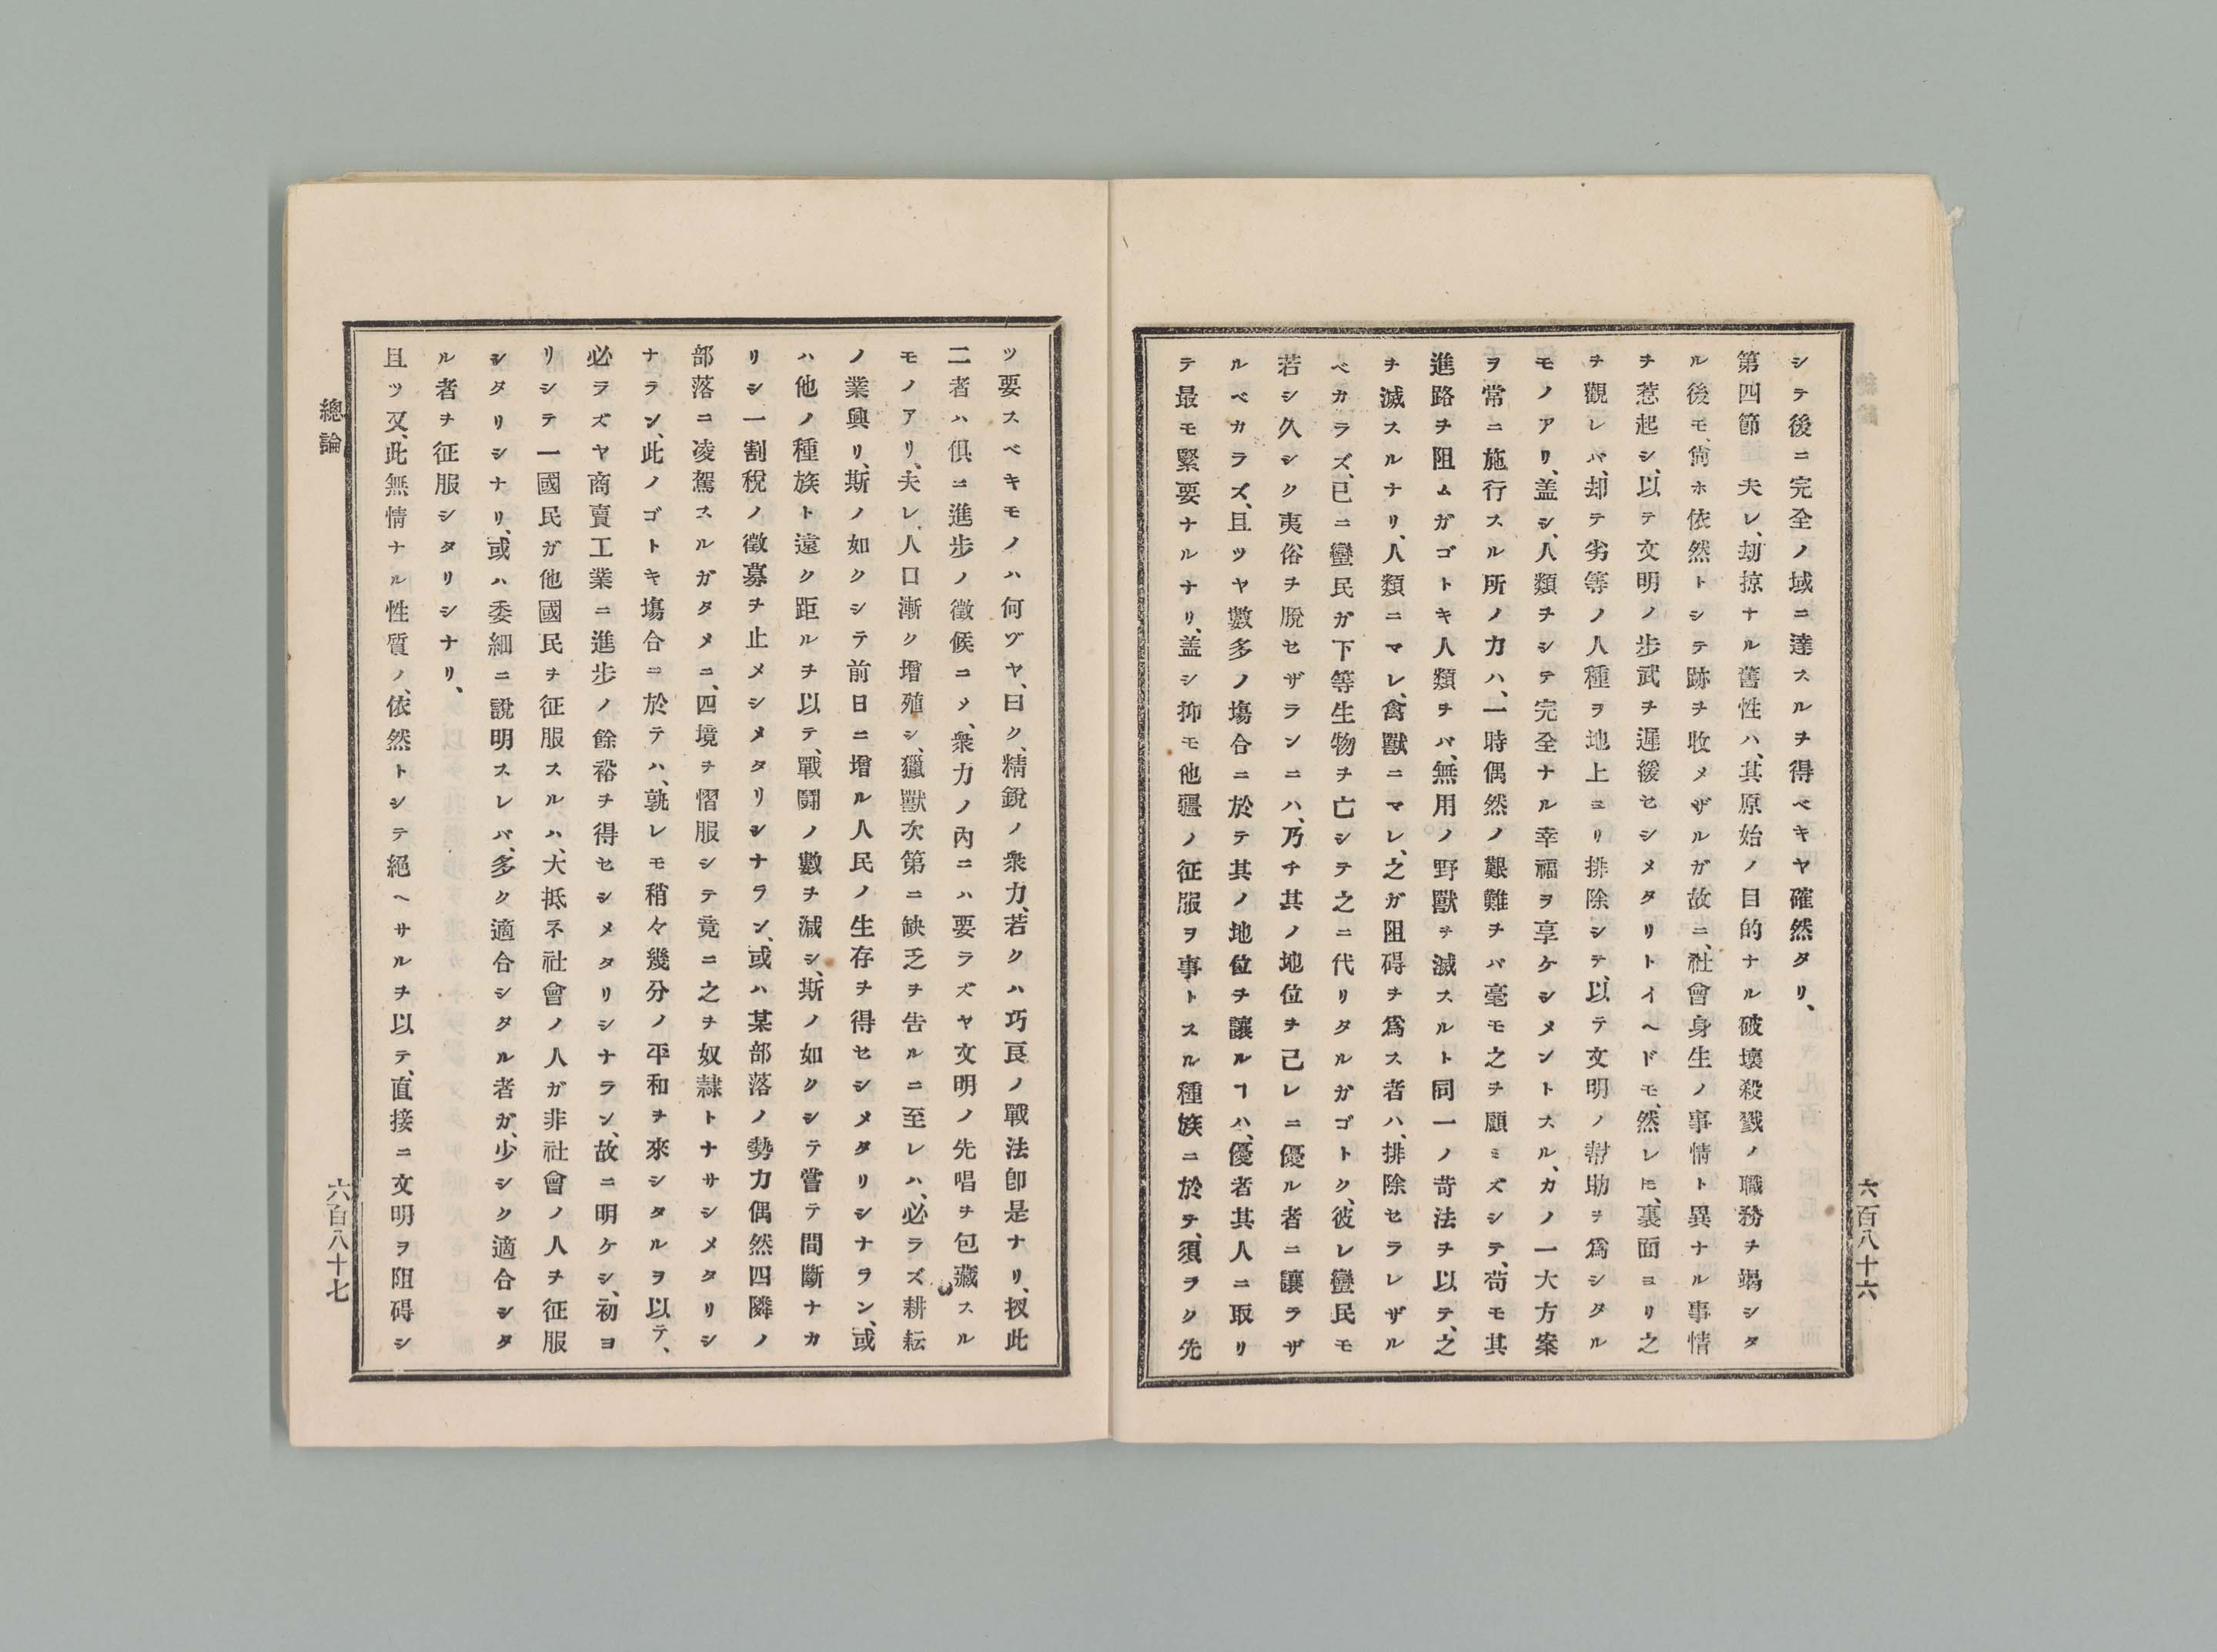 シテ後ニ完全ノ域ニ達スルヲ得ベキヤ確然タリ、
第四節　夫レ、刧掠ナル舊性ハ、其原始ノ目的ナル破壞殺戮ノ職務ヲ竭シタ
ル後モ、尙ホ依然トシテ跡ヲ收メザルガ故ニ、社會身生ノ事情ト異ナル事情
ヲ惹起シ、以テ文明ノ步武ヲ遲緩セシメタリトイヘドモ、然レ𪜈、裏面ヨリ之
ヲ觀レバ、却テ劣等ノ人種ヲ地上ヨリ排除シテ、以テ文明ノ幇助ヲ爲シタル
モノアリ、盖シ、人類ヲシテ完全ナル幸福ヲ享ケシメントスル、カノ一大方案
ヲ常ニ施行スル所ノ力ハ、一時偶然ノ艱難ヲバ毫モ之ヲ顧ミズシテ、苟モ其
進路ヲ阻ムガゴトキ人類ヲバ、無用ノ野獸ヲ滅スルト同一ノ苛法ヲ以テ、之
ヲ滅スルナリ、人類ニマレ、禽獸ニマレ、之ガ阻碍ヲ爲ス者ハ、排除セラレザル
ベカラズ、已ニ蠻民ガ下等生物ヲ亡シテ之ニ代リタルガゴトク、彼レ蠻民モ
若シ久シク夷俗ヲ脫セザランニハ、乃チ其ノ地位ヲ己レニ優ル者ニ讓ラザ
ルベカラズ、且ツヤ數多ノ塲合ニ於テ其ノ地位ヲ讓ルヿハ、優者其人ニ取リ
テ最モ緊要ナルナリ、盖シ抑モ他疆ノ征服ヲ事トスル種族ニ於テ、須ラク先
六百八十六
ツ要スベキモノハ何ヅヤ、曰ク、精銳ノ衆力、若クハ巧良ノ戰法卽是ナリ、扠此
二者ハ俱ニ進步ノ徵候コメ、衆力ノ內ニハ要ラズヤ文明ノ先唱ヲ包藏スル
モノアリ、夫レ、人口漸ク增殖シ、獵獸次第ニ缺乏ヲ告ルニ至レハ、必ラズ耕耘
ノ業興リ、斯ノ如クシテ前日ニ增ル人民ノ生存ヲ得セシメタリシナラン、或
ハ他ノ種族ト遠ク距ルヲ以テ、戰鬪ノ數ヲ減シ、斯ノ如クシテ嘗テ間斷ナカ
リシ一割稅ノ徵募ヲ止メシメタリシナラン、或ハ某部落ノ勢力偶然四隣ノ
部落ニ凌駕スルガタメニ、四境ヲ慴服シテ竟ニ之ヲ奴隷トナサシメタリシ
ナラン、此ノゴトキ塲合ニ於テハ、孰レモ稍々幾分ノ平和ヲ來シタルヲ以テ、
必ラズヤ商賣工業ニ進步ノ餘裕ヲ得セシメタリシナラン、故ニ明ケシ、初ヨ
リシテ一國民ガ他國民ヲ征服スルハ、大抵ネ社會ノ人ガ非社會ノ人ヲ征服
シタリシナリ、或ハ委細ニ說明スレバ、多ク適合シタル者ガ、少シク適合シタ
ル者ヲ征服シタリシナリ、
且ツ又、此無情ナル性質ノ、依然トシテ絕ヘサルヲ以テ、直接ニ文明ヲ阻碍シ
總論
六百八十七